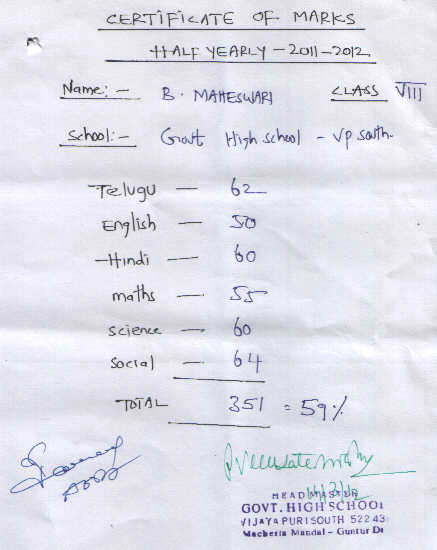 CERTIFICATE OF MARKS
HALF YEARLY - 2011-2012
Name:- B. MAHESWARI CLASS VIII
School:- Govt High school - Vp south.
Telugu - 62
English - 50
Hindi - 60
maths - 55
science - 60
Social - 64
TOTAL 351 = 59%
HEADMASTER
GOVT. HIGH SCHOOL
VIJAYAPURISOUTH 522 43
Macherla Mandal - Guntur Dt